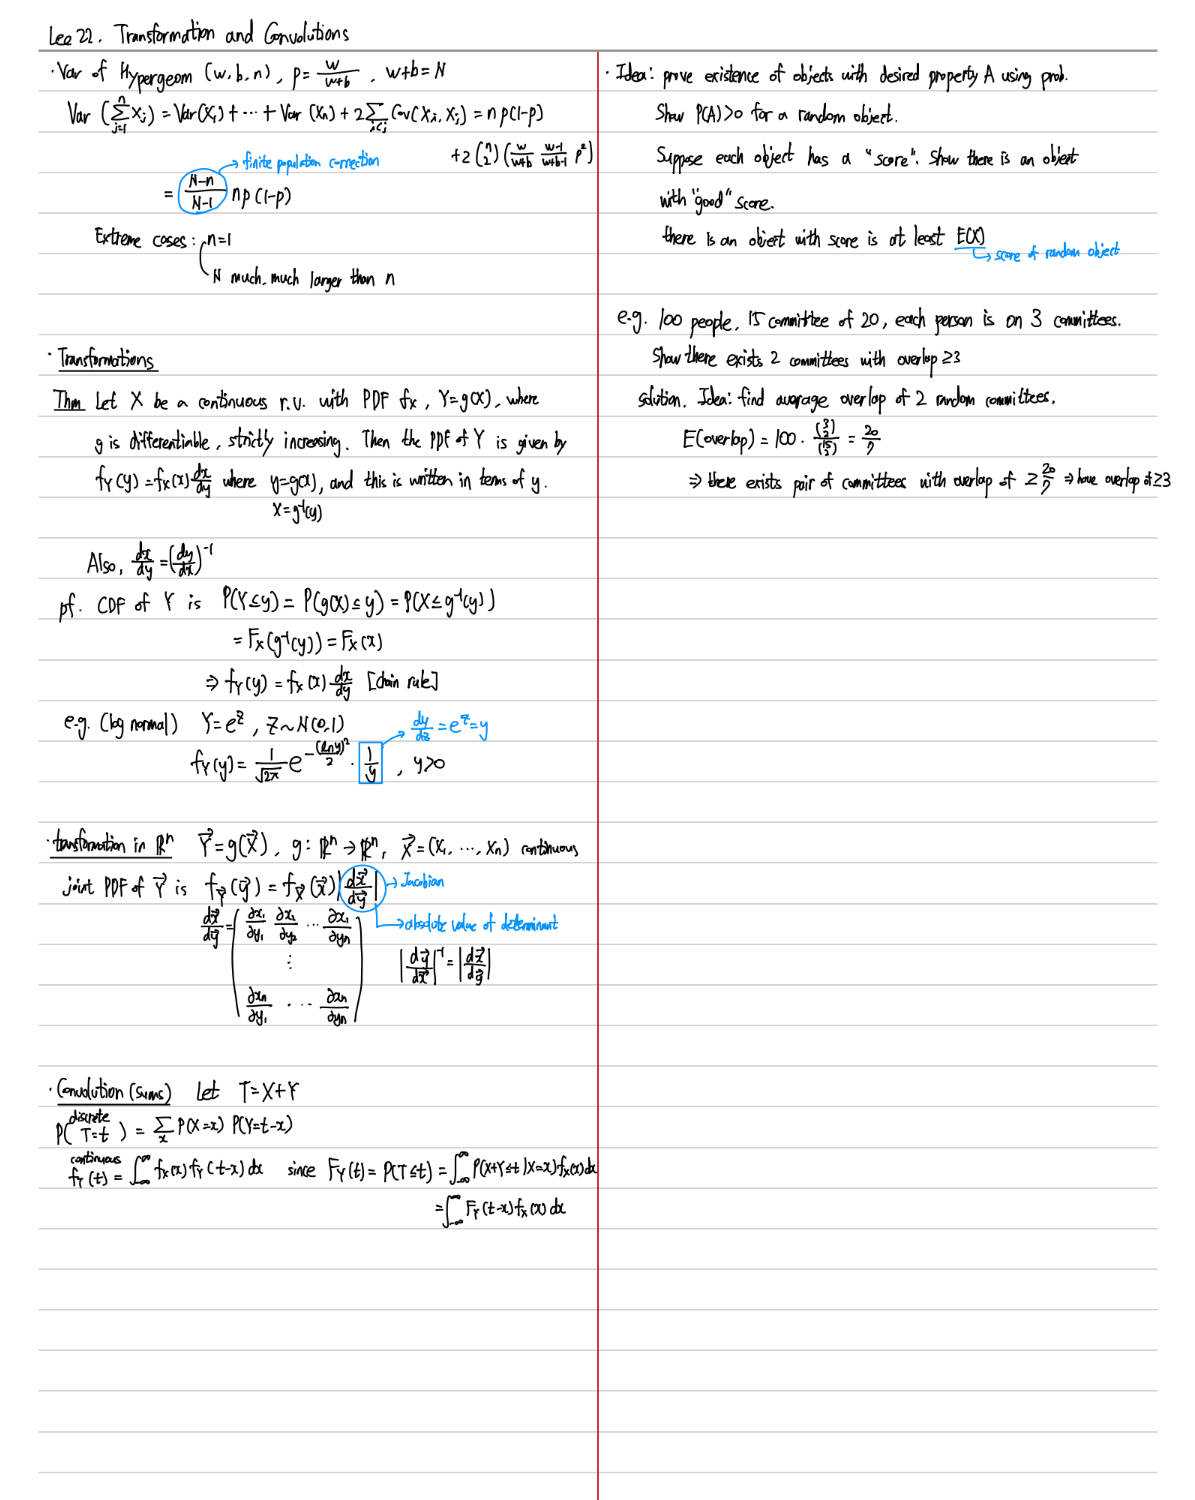 Lec 22. Transformation and Convolutions
· Var of Hypergeom (w, b, n), p = w/(w+b), w+b = N
Var (∑_{j=1}^{n} X_j) = Var(X_1) + ⋯ + Var(X_n) + 2∑_{i<j} Cov(X_i, X_j) = n p(1-p)
+ 2 (n 2) (w/(w+b) (w-1)/(w+b-1) p²)
→ finite population correction
= (N-n)/(N-1) np(1-p)
Extreme cases: n=1
N much, much larger than n
· Transformations
Thm Let X be a continuous r.v. with PDF f_X, Y=g(X), where
g is differentiable, strictly increasing. Then the PDF of Y is given by
f_Y(y) = f_X(x) dx/dy where y=g(x), and this is written in terms of y.
x = g⁻¹(y)
Also, dx/dy = (dy/dx)⁻¹
pf. CDF of Y is P(Y≤y) = P(g(X)≤y) = P(X≤g⁻¹(y))
= F_X(g⁻¹(y)) = F_X(x)
⇒ f_Y(y) = f_X(x) dx/dy [chain rule]
e.g. (log normal) Y = e^Z, Z ~ N(0,1)
dy/dz = e^z = y
f_Y(y) = 1/√2π e^{-(ln y)²/2} · 1/y, y>0
· transformation in ℝⁿ Y⃗ = g(X⃗), g: ℝⁿ → ℝⁿ, X⃗ = (X_1, ⋯, X_n) continuous
joint PDF of Y⃗ is f_Y⃗(y⃗) = f_X⃗(x⃗) |dx⃗/dy⃗| → Jacobian
→ absolute value of determinant
dx⃗/dy⃗ = ( ∂x_1/∂y_1 ∂x_1/∂y_2 ⋯ ∂x_1/∂y_n
⋮
∂x_n/∂y_1 ⋯ ∂x_n/∂y_n )
|dy⃗/dx⃗|⁻¹ = |dx⃗/dy⃗|
· Convolution (sums) Let T = X+Y
discrete
P(T=t) = ∑_x P(X=x) P(Y=t-x)
continuous
f_T(t) = ∫_{-∞}^{∞} f_X(x) f_Y(t-x) dx since F_T(t) = P(T≤t) = ∫_{-∞}^{∞} P(X+Y≤t | X=x) f_X(x) dx
= ∫_{-∞}^{∞} F_Y(t-x) f_X(x) dx
· Idea: prove existence of objects with desired property A using prob.
Show P(A)>0 for a random object.
Suppose each object has a "score". Show there is an object
with "good" score.
there is an object with score is at least E(X)
→ score of random object
e.g. 100 people, 15 committee of 20, each person is on 3 committees.
Show there exists 2 committees with overlap ≥3
solution. Idea: find average overlap of 2 random committees.
E(overlap) = 100 · (3 2)/(15 2) = 20/7
⇒ there exists pair of committees with overlap of ≥ 20/7 ⇒ have overlap of ≥3